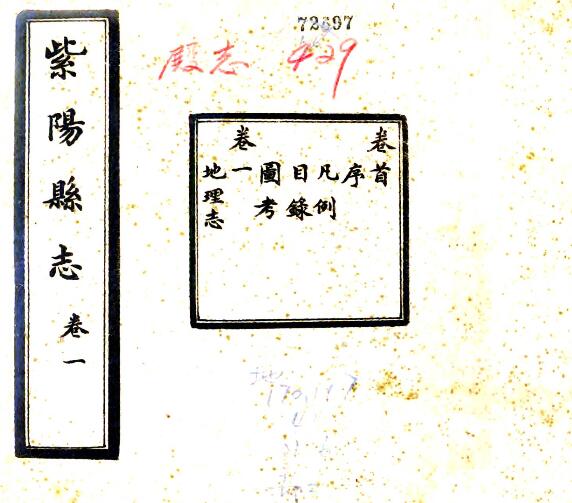 紫陽縣志 卷一
72697
殿志 429
卷首
序
凡例
目錄
圖考
卷一
地理志